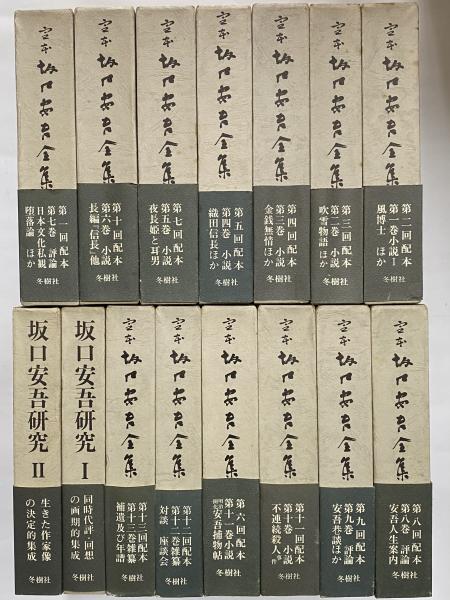 定本 坂口安吾全集
第二回配本
第一巻 小説Ⅰ
風博士 ほか
冬樹社
定本 坂口安吾全集
第三回配本
第二巻 小説
吹雪物語 ほか
冬樹社
定本 坂口安吾全集
第四回配本
第三巻 小説
金銭無情ほか
冬樹社
定本 坂口安吾全集
第五回配本
第四巻 小説
織田信長ほか
冬樹社
定本 坂口安吾全集
第七回配本
第五巻 小説
夜長姫と耳男
冬樹社
定本 坂口安吾全集
第十回配本
第六巻 小説
長編『信長』他
冬樹社
定本 坂口安吾全集
第一回配本
第七巻 評論
日本文化私観
堕落論 ほか
冬樹社
定本 坂口安吾全集
第八回配本
第八巻 評論
安吾人生案内
冬樹社
定本 坂口安吾全集
第九回配本
第九巻 評論
安吾巷談ほか
冬樹社
定本 坂口安吾全集
第十一回配本
第十巻 小説
不連続殺人事件
冬樹社
定本 坂口安吾全集
第六回配本
第十一巻小説
明治開化安吾捕物帖
冬樹社
定本 坂口安吾全集
第十二回配本
第十二巻雑纂
対談 座談会
冬樹社
定本 坂口安吾全集
第十三回配本
第十三巻雑纂
補遺及び年譜
冬樹社
坂口安吾研究Ⅰ
同時代評・回想
の画期的集成
冬樹社
坂口安吾研究Ⅱ
生きた作家像
の決定的集成
冬樹社